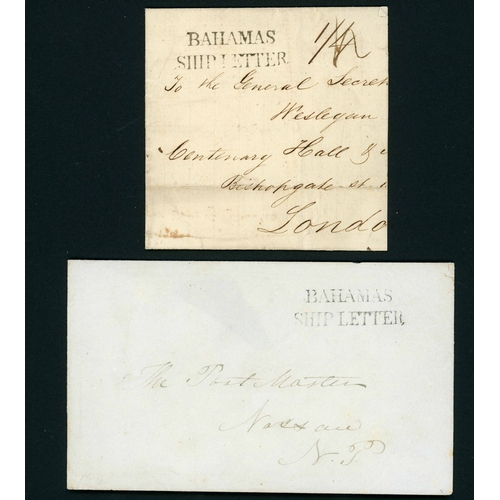 BAHAMAS
SHIP LETTER
To the General Secre
Wesleyan
Centenary Hall &
Bishopgate st
Londo
BAHAMAS
SHIP LETTER
The Post Master
Nassau
N.P